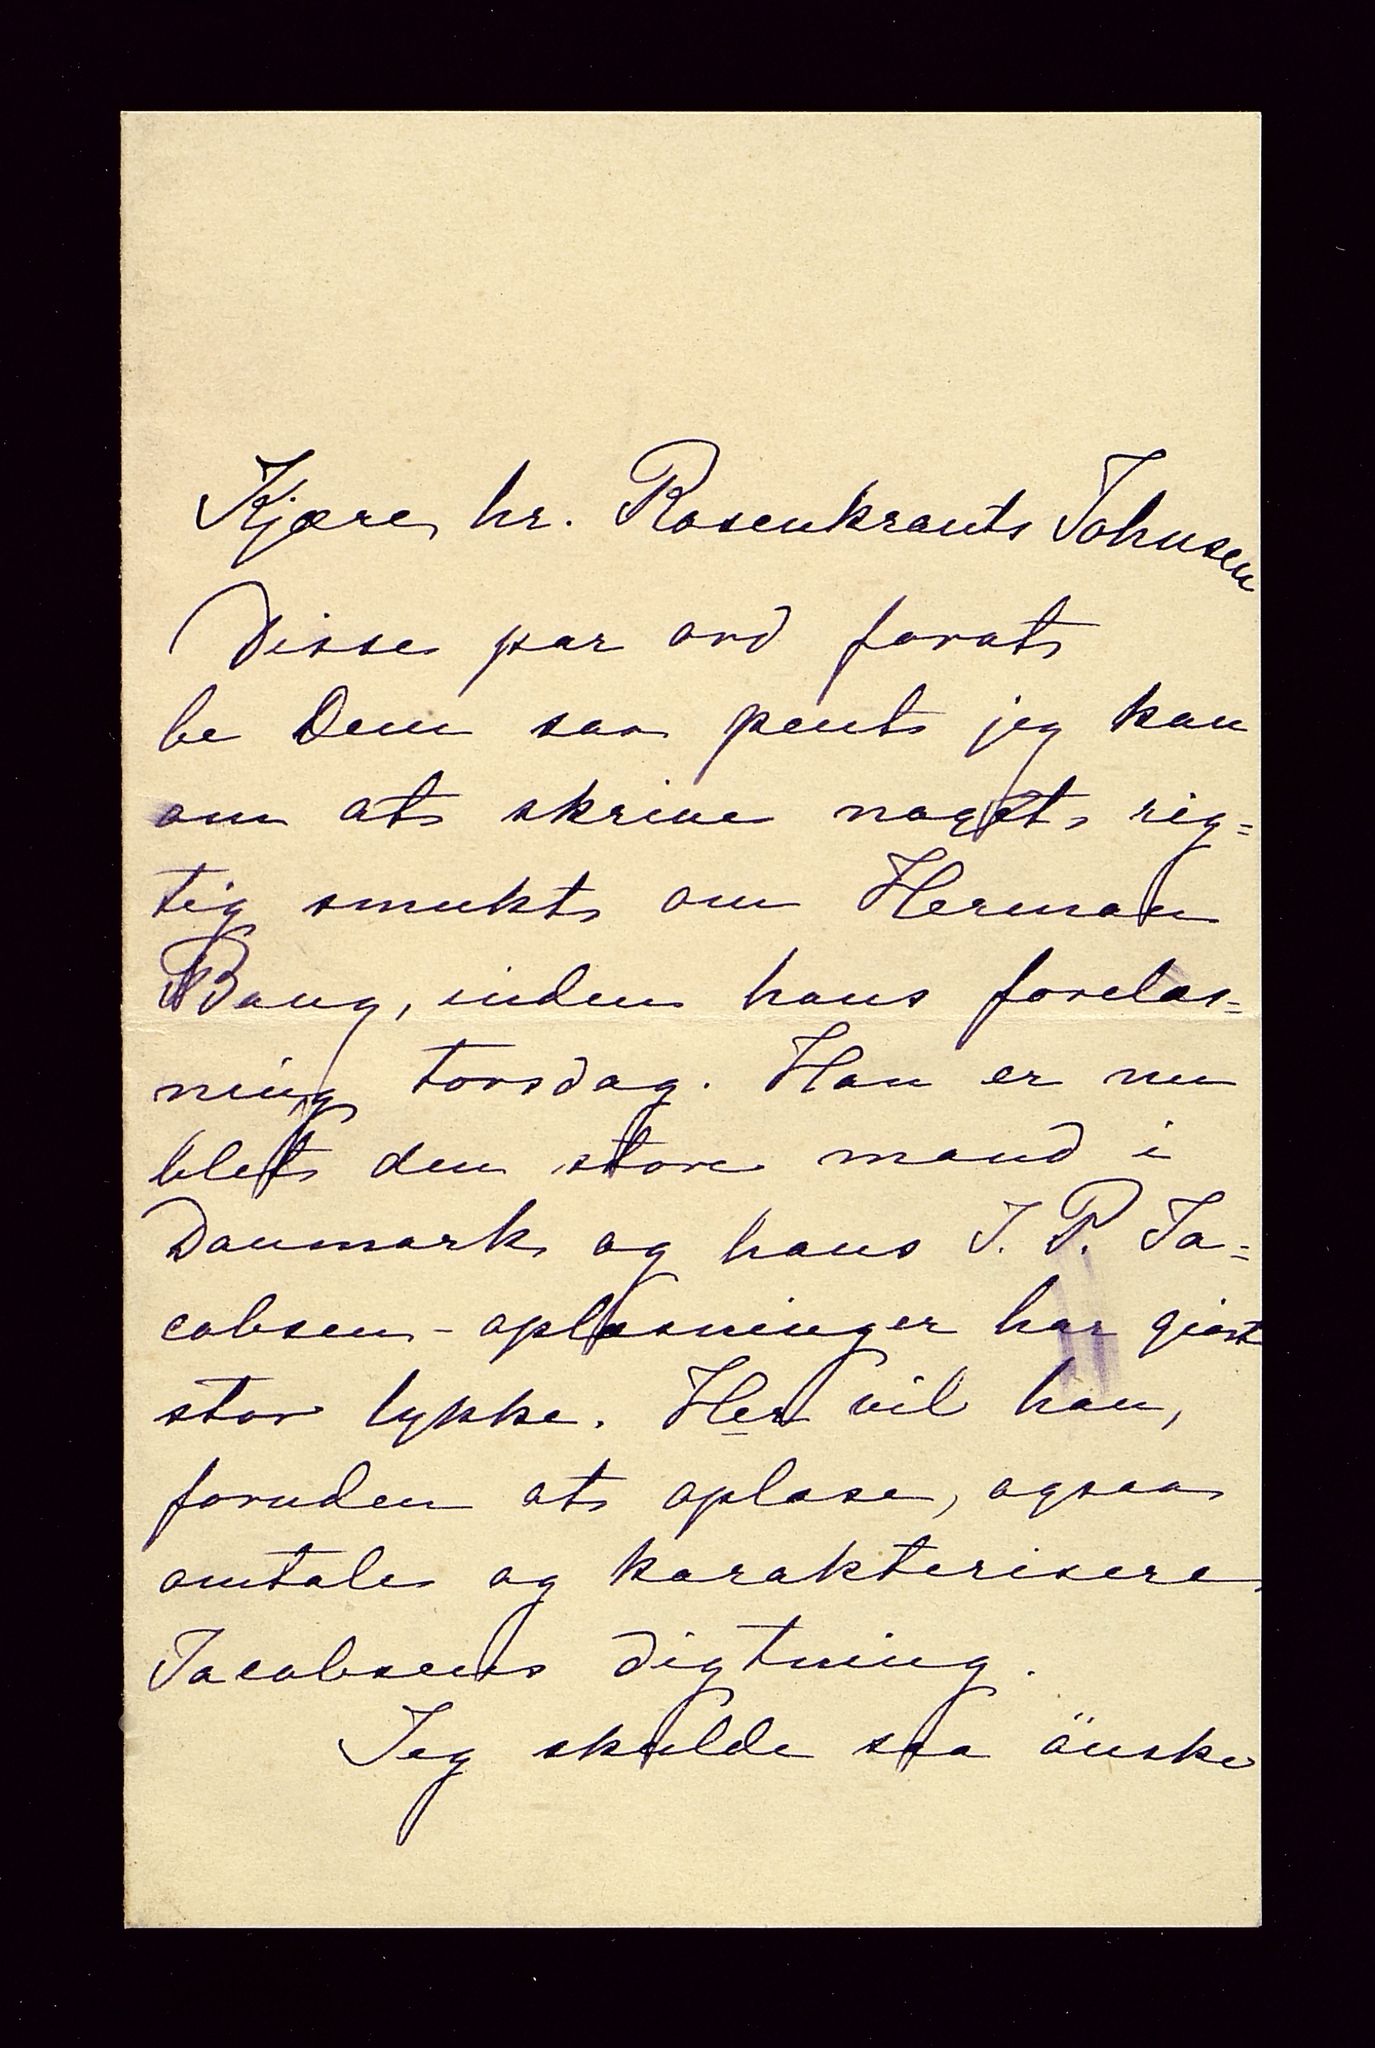 Kjære hr. Rosenkrants Johnsen
Disse par ord forat
be Dem saa pent jeg kan
om at skrive noget rig=
tig smukt om Herman
Bang, inden hans forelæs=
ning torsdag. Han er nu
blet den store mand i
Danmark og hans J. P. Ja=
cobsen-oplæsninger har gjort
stor lykke. Her vil han,
foruden at oplæse, ogsaa
omtale og karakterisere
Jacobsens digtning.
Jeg skulde saa önske